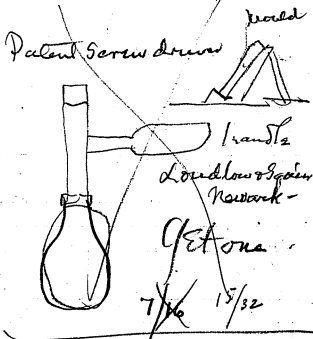 mould
Patent Screw driver
Handle
Ludlow & Squier
Newark -
Get one.
7/16 15/32